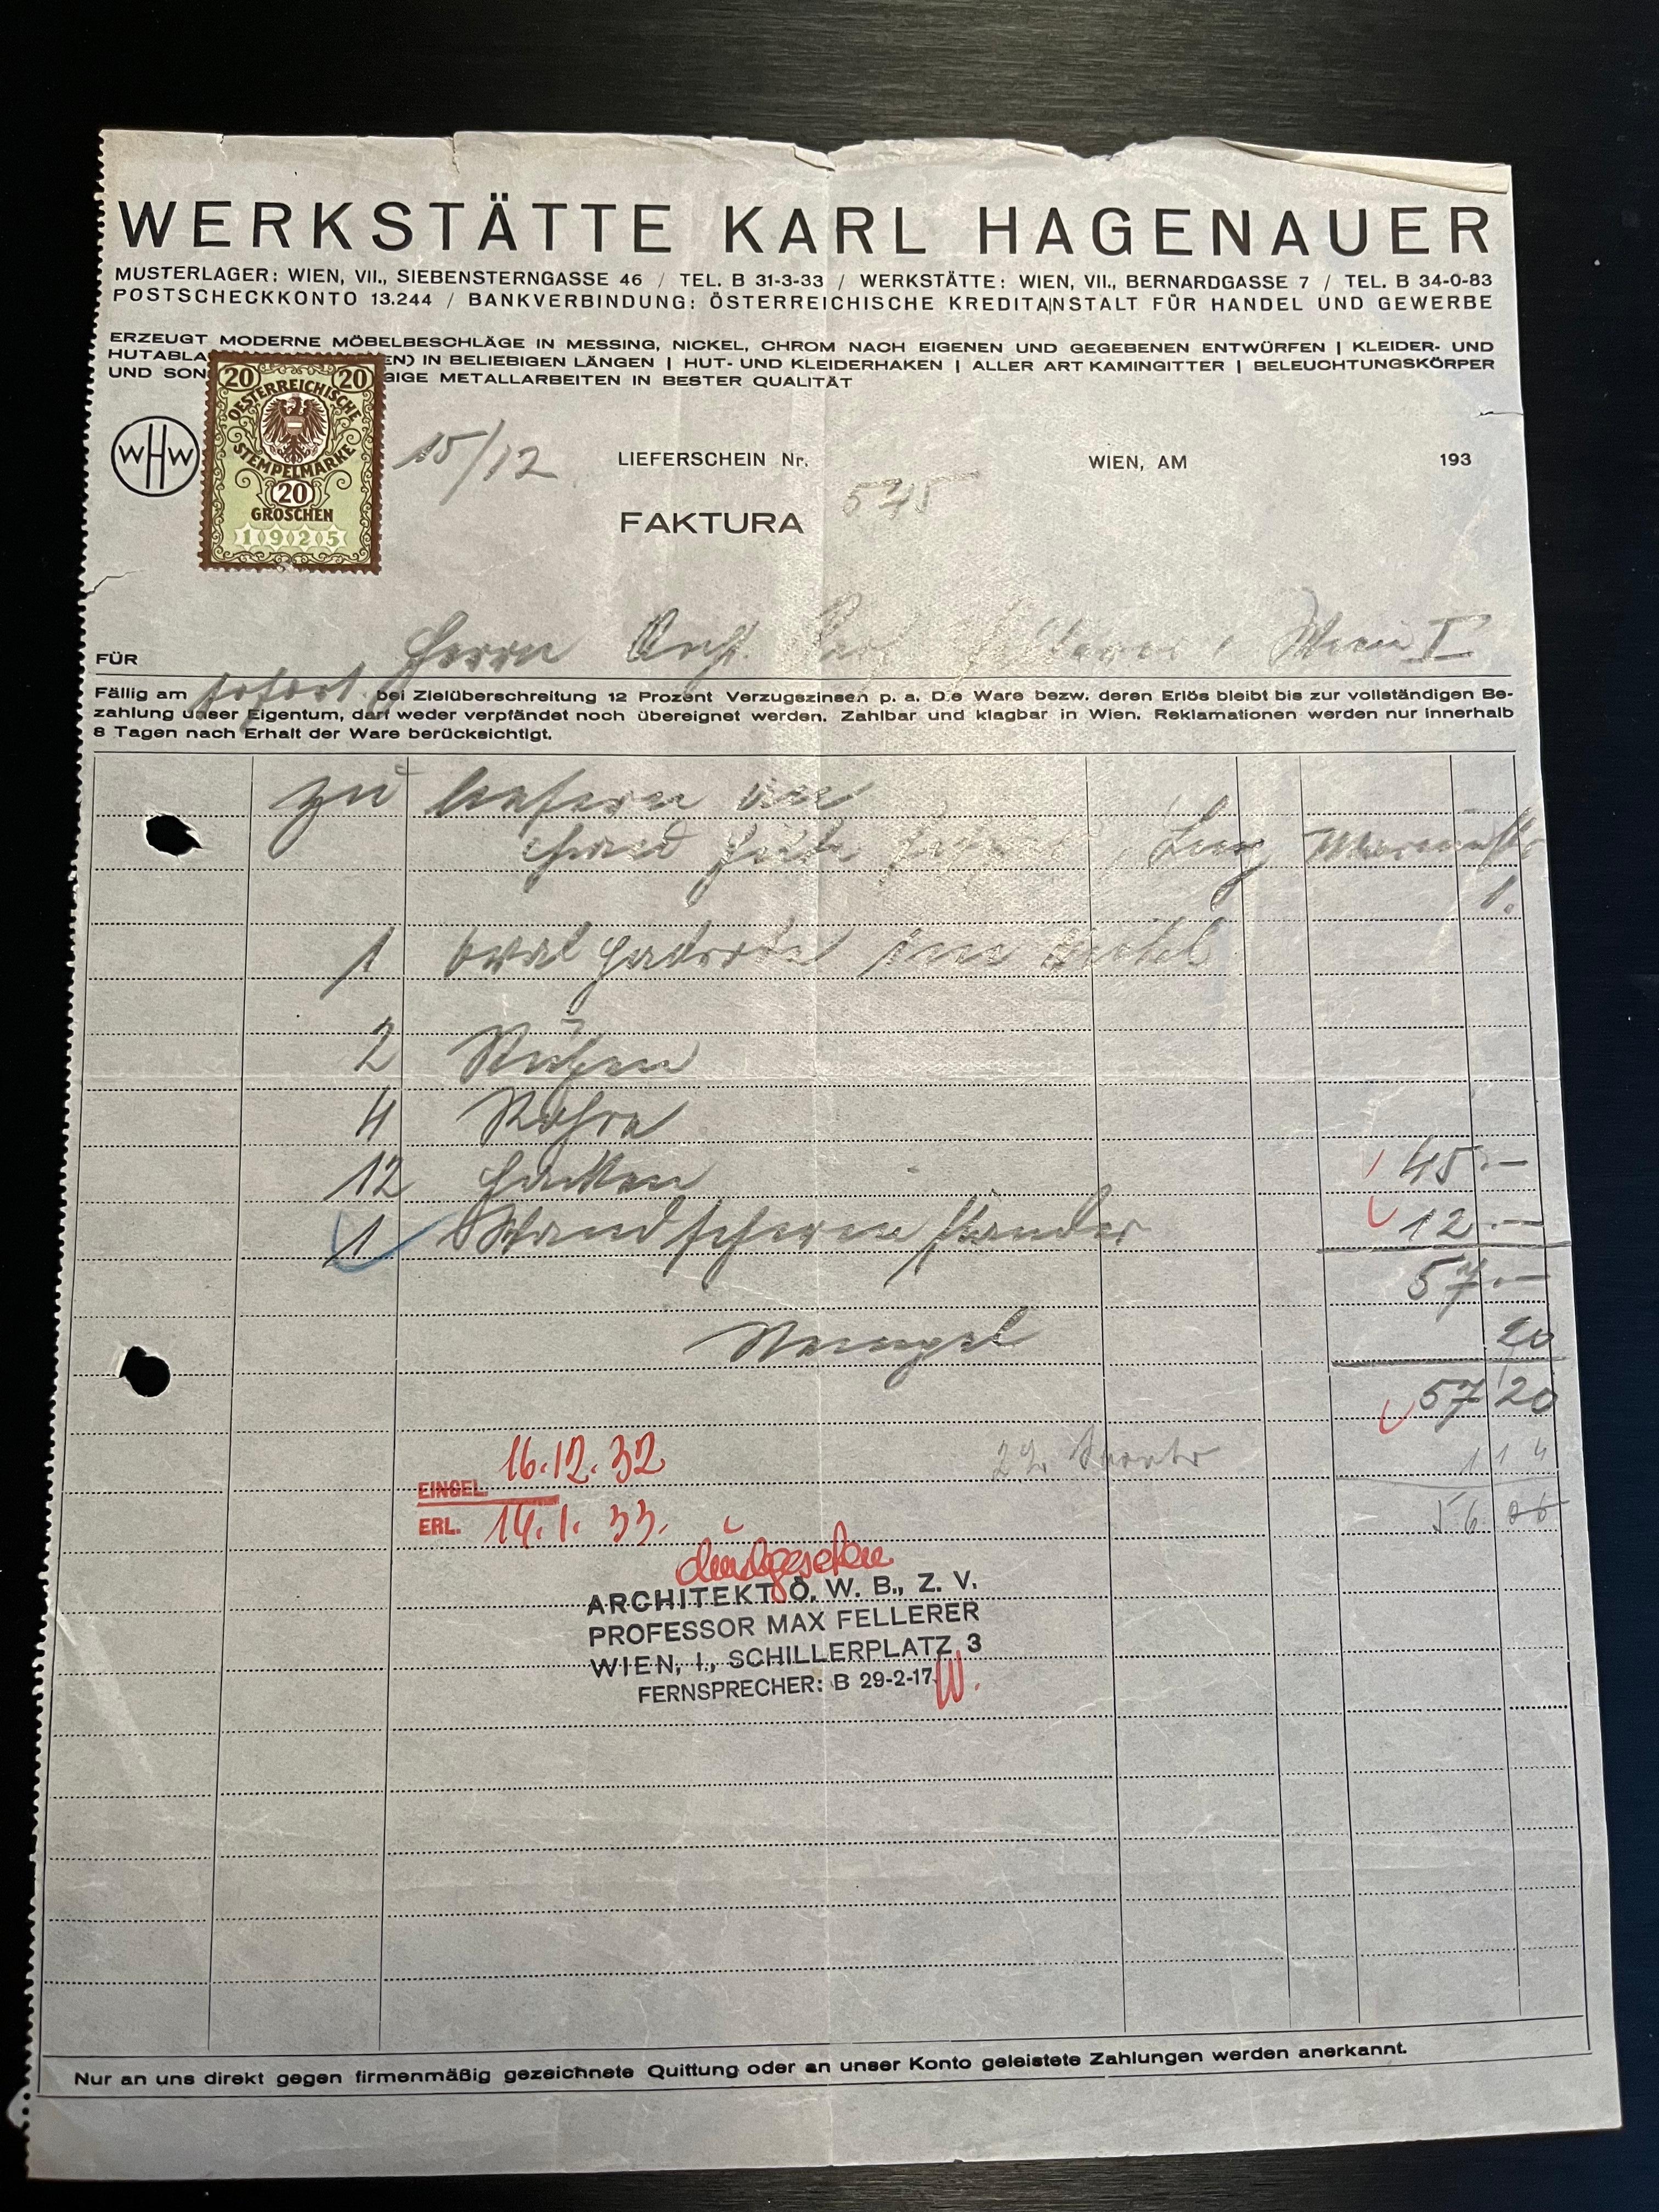 WERKSTÄTTE KARL HAGENAUER
MUSTERLAGER: WIEN, VII., SIEBENSTERNGASSE 46 / TEL. B 31-3-33 / WERKSTÄTTE: WIEN, VII., BERNARDGASSE 7 / TEL. B 34-0-83
POSTSCHECKKONTO 13.244 / BANKVERBINDUNG: ÖSTERREICHISCHE KREDITANSTALT FÜR HANDEL UND GEWERBE
ERZEUGT MODERNE MÖBELBESCHLÄGE IN MESSING, NICKEL, CHROM NACH EIGENEN UND GEGEBENEN ENTWÜRFEN | KLEIDER- UND
HUTABLA EN) IN BELIEBIGEN LÄNGEN | HUT- UND KLEIDERHAKEN | ALLER ART KAMINGITTER | BELEUCHTUNGSKÖRPER
UND SON GIGE METALLARBEITEN IN BESTER QUALITÄT
20 20
OESTERREICHISCHE
STEMPELMARKE
20
GROSCHEN
1925
WHW
15/12
LIEFERSCHEIN Nr.
WIEN, AM 193
FAKTURA 545
FÜR Herrn Wien I
Fällig am sofort bei Zielüberschreitung 12 Prozent Verzugszinsen p. a. Die Ware bezw. deren Erlös bleibt bis zur vollständigen Be-
zahlung unser Eigentum, darf weder verpfändet noch übereignet werden. Zahlbar und klagbar in Wien. Reklamationen werden nur innerhalb
8 Tagen nach Erhalt der Ware berücksichtigt.
zu liefern an
1.
1 oval
2
4 Rohre
12 Hacken 45.—
1 Wandschirmständer 12.—
57.—
Stempel 20
57 20
2% Skonto 1 14
56 06
EINGEL. 16.12.32
ERL. 14.1.33.
durchgesehen
ARCHITEKT Ö. W. B., Z. V.
PROFESSOR MAX FELLERER
WIEN, I., SCHILLERPLATZ 3
FERNSPRECHER: B 29-2-17
W.
Nur an uns direkt gegen firmenmäßig gezeichnete Quittung oder an unser Konto geleistete Zahlungen werden anerkannt.